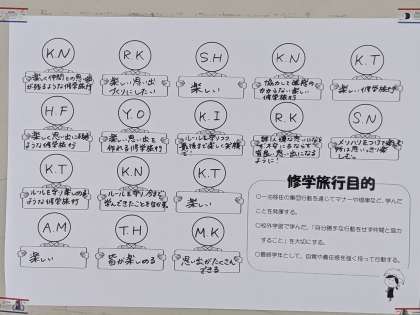 K.N
R.K
S.H
K.N
K.T
楽しく仲間との思い出
が残るような修学旅行
楽しい思い出
づくりにしたい
楽しい
協力して迷惑の
かからない楽しい
修学旅行
楽しい修学旅行
H.F
Y.O
K.I
R.K
S.N
楽しく思い出に
ような修学旅行
楽しい思い出を
作れる修学旅行
ルールを守りつつ
最後まで楽しく笑顔
で
思い出になる
ように!
メリハリをつけて
時は思いっきり楽
しむ。
K.T
K.N
K.T
ルールを守り楽しめる
ような修学旅行
ルールを守り今まで
学んできたことを
楽しい
A.M
T.H
M.K
楽しい
皆が楽しめる
思い出がたくさん
できる
修学旅行目的
○一泊移住の集団行動を通じてマナーや規律など、学んだ
ことを発揮する。
○校外学習で学んだ、「自分勝手な行動をせず仲間と協力
すること」を大切にする。
○最終学年として、自覚や責任感を強く持って行動する。